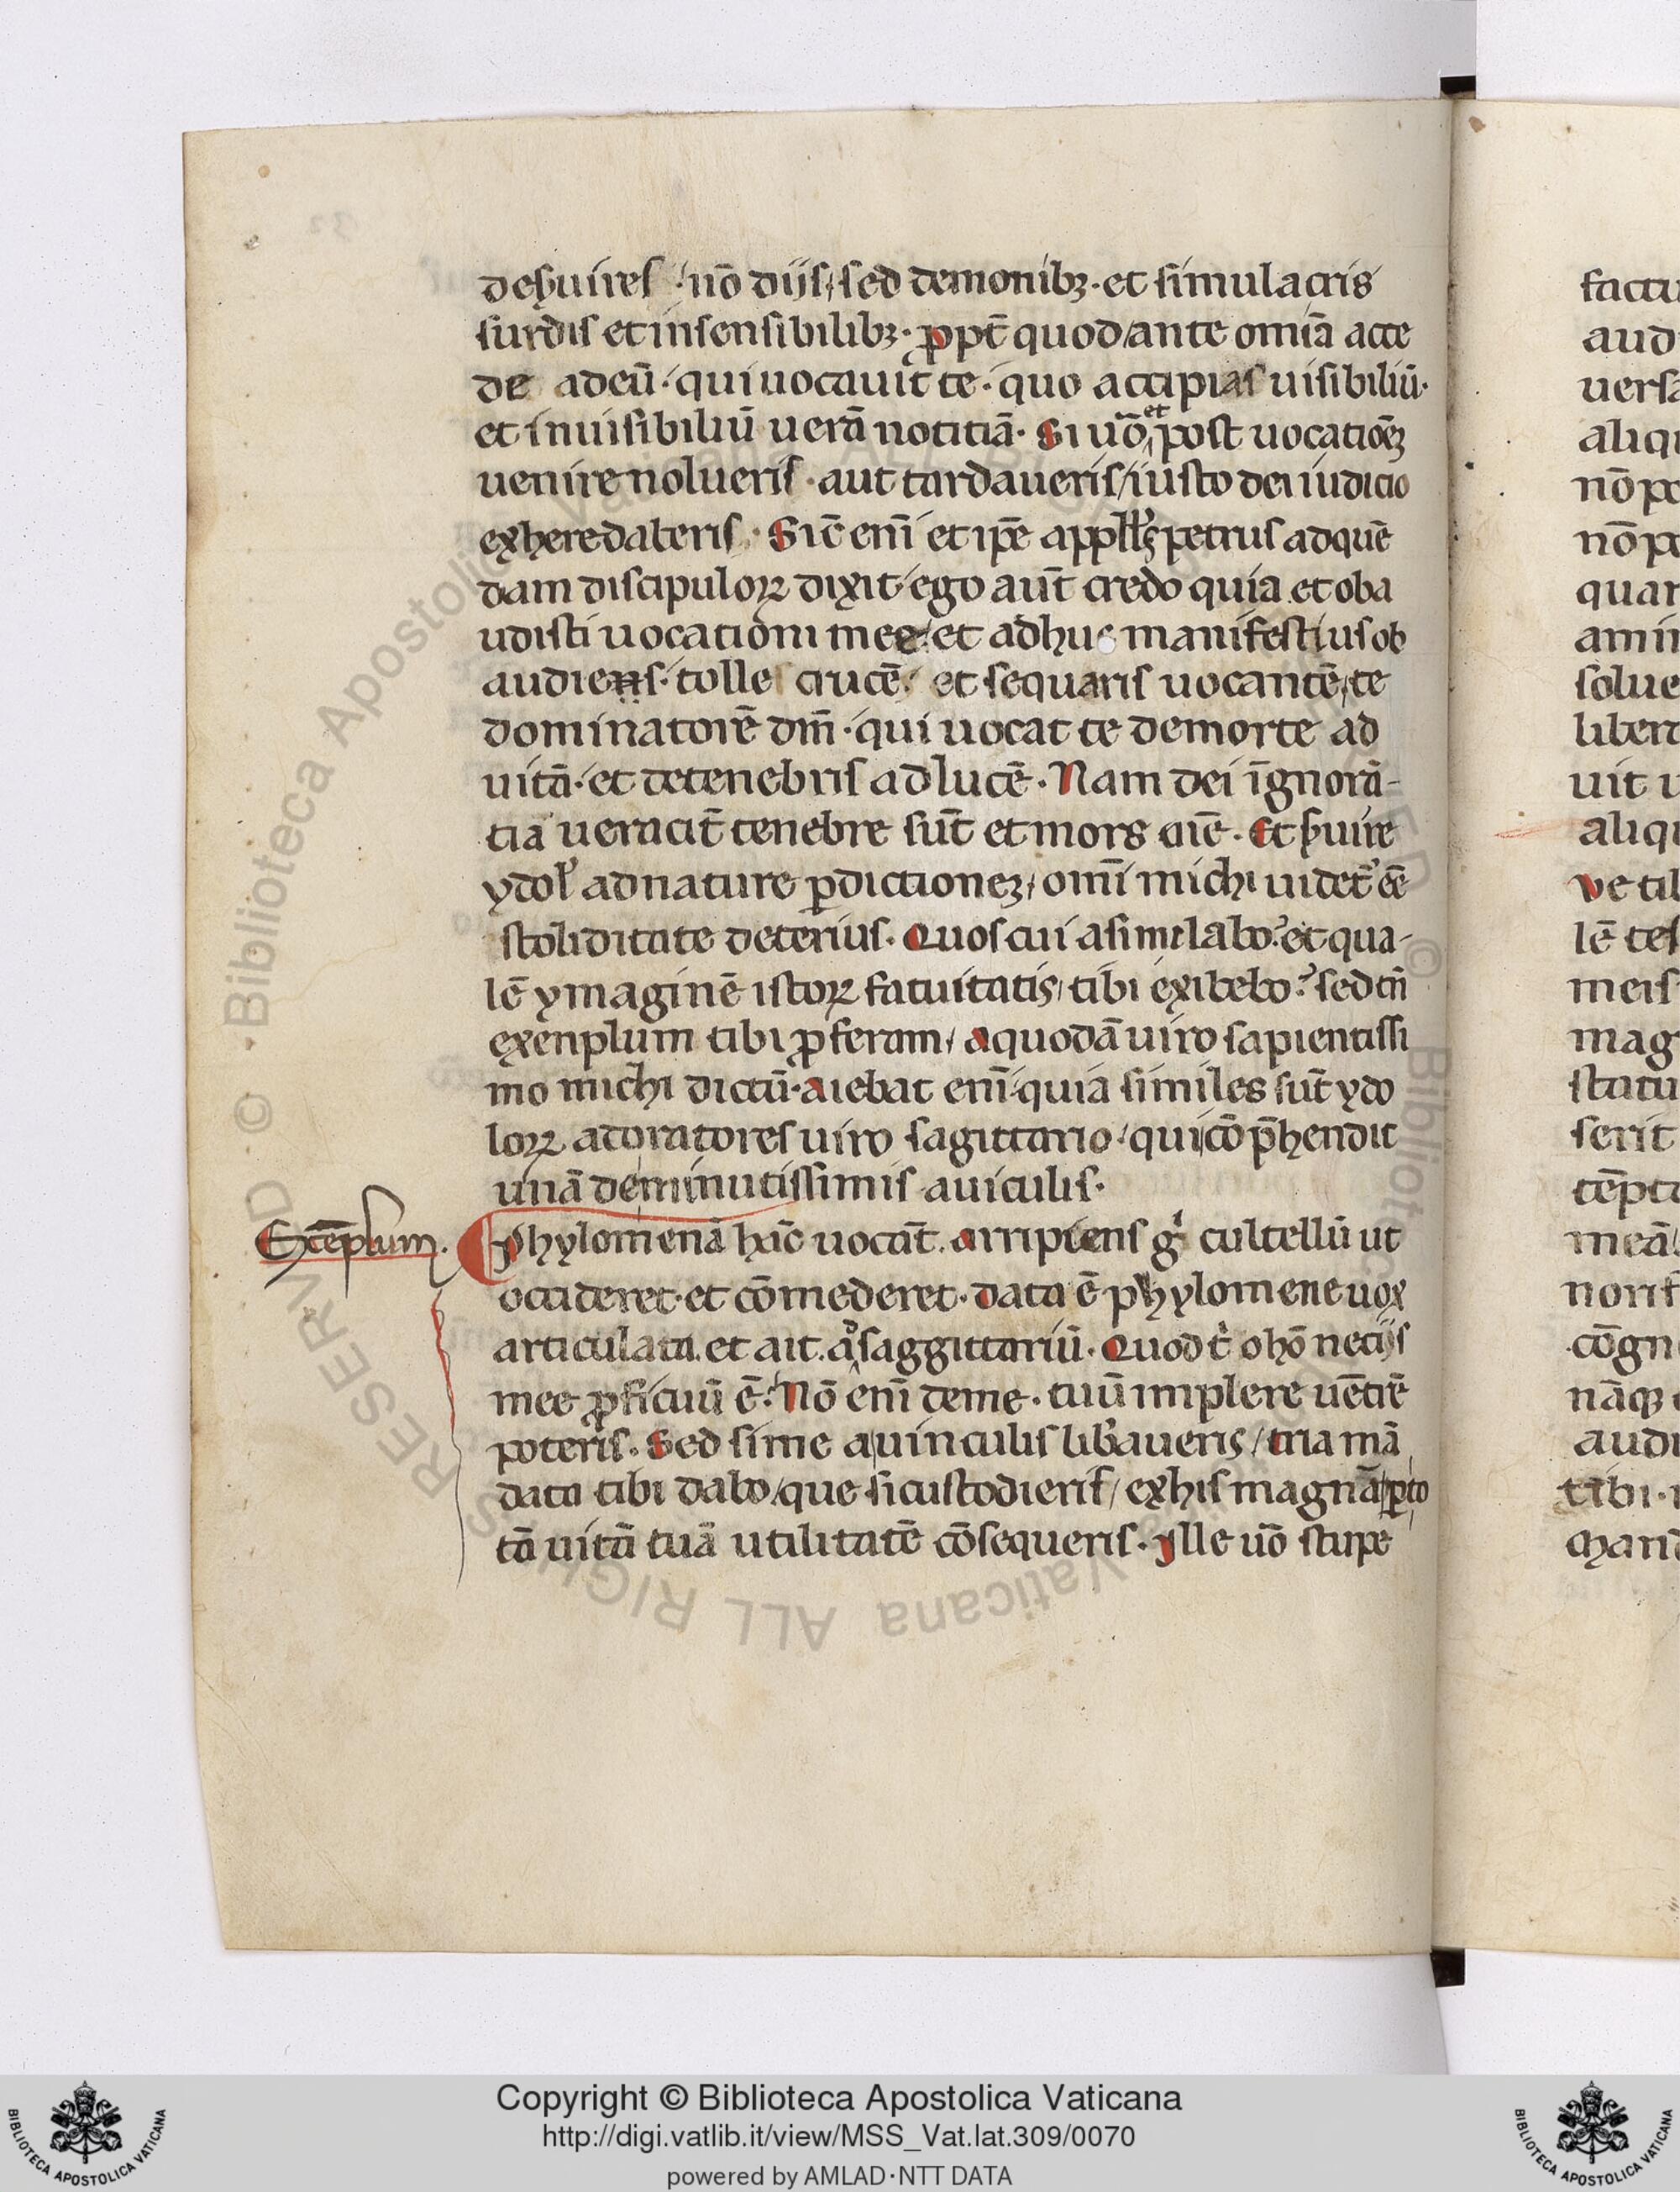 deẜuires. nō diis, sed demonibꝫ. et simulacris
surdis et insensibilibꝫ. ꝓpt̄ quod, ante omīa acce
de ad eū. qui uocauit te. quo accipias uisibiliū.
et inuisibiliū uerā notitiā. Si uō et post uocatiōeꝫ
uenire nolueris. aut tardaueris, iusto dei iudicio
exheredaberis. Sic̄ enī et ip̄e petrus ad quē
dam discipuloꝝ dixit. ego aut̄ credo quia et oba
udisti uocationi mee. et adhuc manifestius ob
audiens. tolle crucē. et sequaris uocantē, te
dominatorē dm̄. qui uocat te de morte ad
uitā. et de tenebris ad lucē. Nam dei īgnorā-
tia ueracit̄ tenebre sūt et mors aīe. Et ẜuire
ydol' ad nature ꝑdictioneꝫ, omī michi uidet' ēē
stoliditate deterius. Quos cui asimilabo? et qua-
lē ymaginē istoꝝ fatuitatis, tibi exibebo? sed tn̄
exenplum tibi ꝓferam, a quodā uiro sapientissi
mo michi dictū. aiebat enī. quia similes sūt ydo
loꝝ adoratores uiro sagittario. qui cō p̄hendit
unā de minutissimis auiculis.
Exēplum. Phylomenā hāc uocāt. arripiens gͥ cultellū ut
occideret. et cōmederet. data ē phylomene uox
articulata. et ait. saggittariū. Quod t̄ o hō necis
mee ꝓficuū ē? Nō enī de me. tuū implere uētrē
poteris. Sed si me a uinculis lib'aueris, tria mā
data tibi dabo, que si custodieris, ex his magnā ꝑ to
tā uitā tuā utilitatē cōsequeris. Ille uō stupe
factu
aud
uersa
aliqu
nō po
nō po
quar
amin
solue
libera
uit u
aliqu
ve tib
lē tes
meis
mag
statu
serit
tēpta
meā
norit
cōgn
nāqꝫ
audi
tibi.
mand
Copyright © Biblioteca Apostolica Vaticana
http://digi.vatlib.it/view/MSS_Vat.lat.309/0070
powered by AMLAD·NTT DATA
BIBLIOTECA APOSTOLICA VATICANA
BIBLIOTECA APOSTOLICA VATICANA